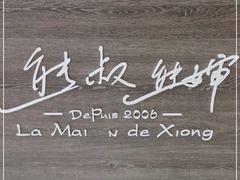 熊叔 熊婶
— Depuis 2006 —
La Mai n de Xiong